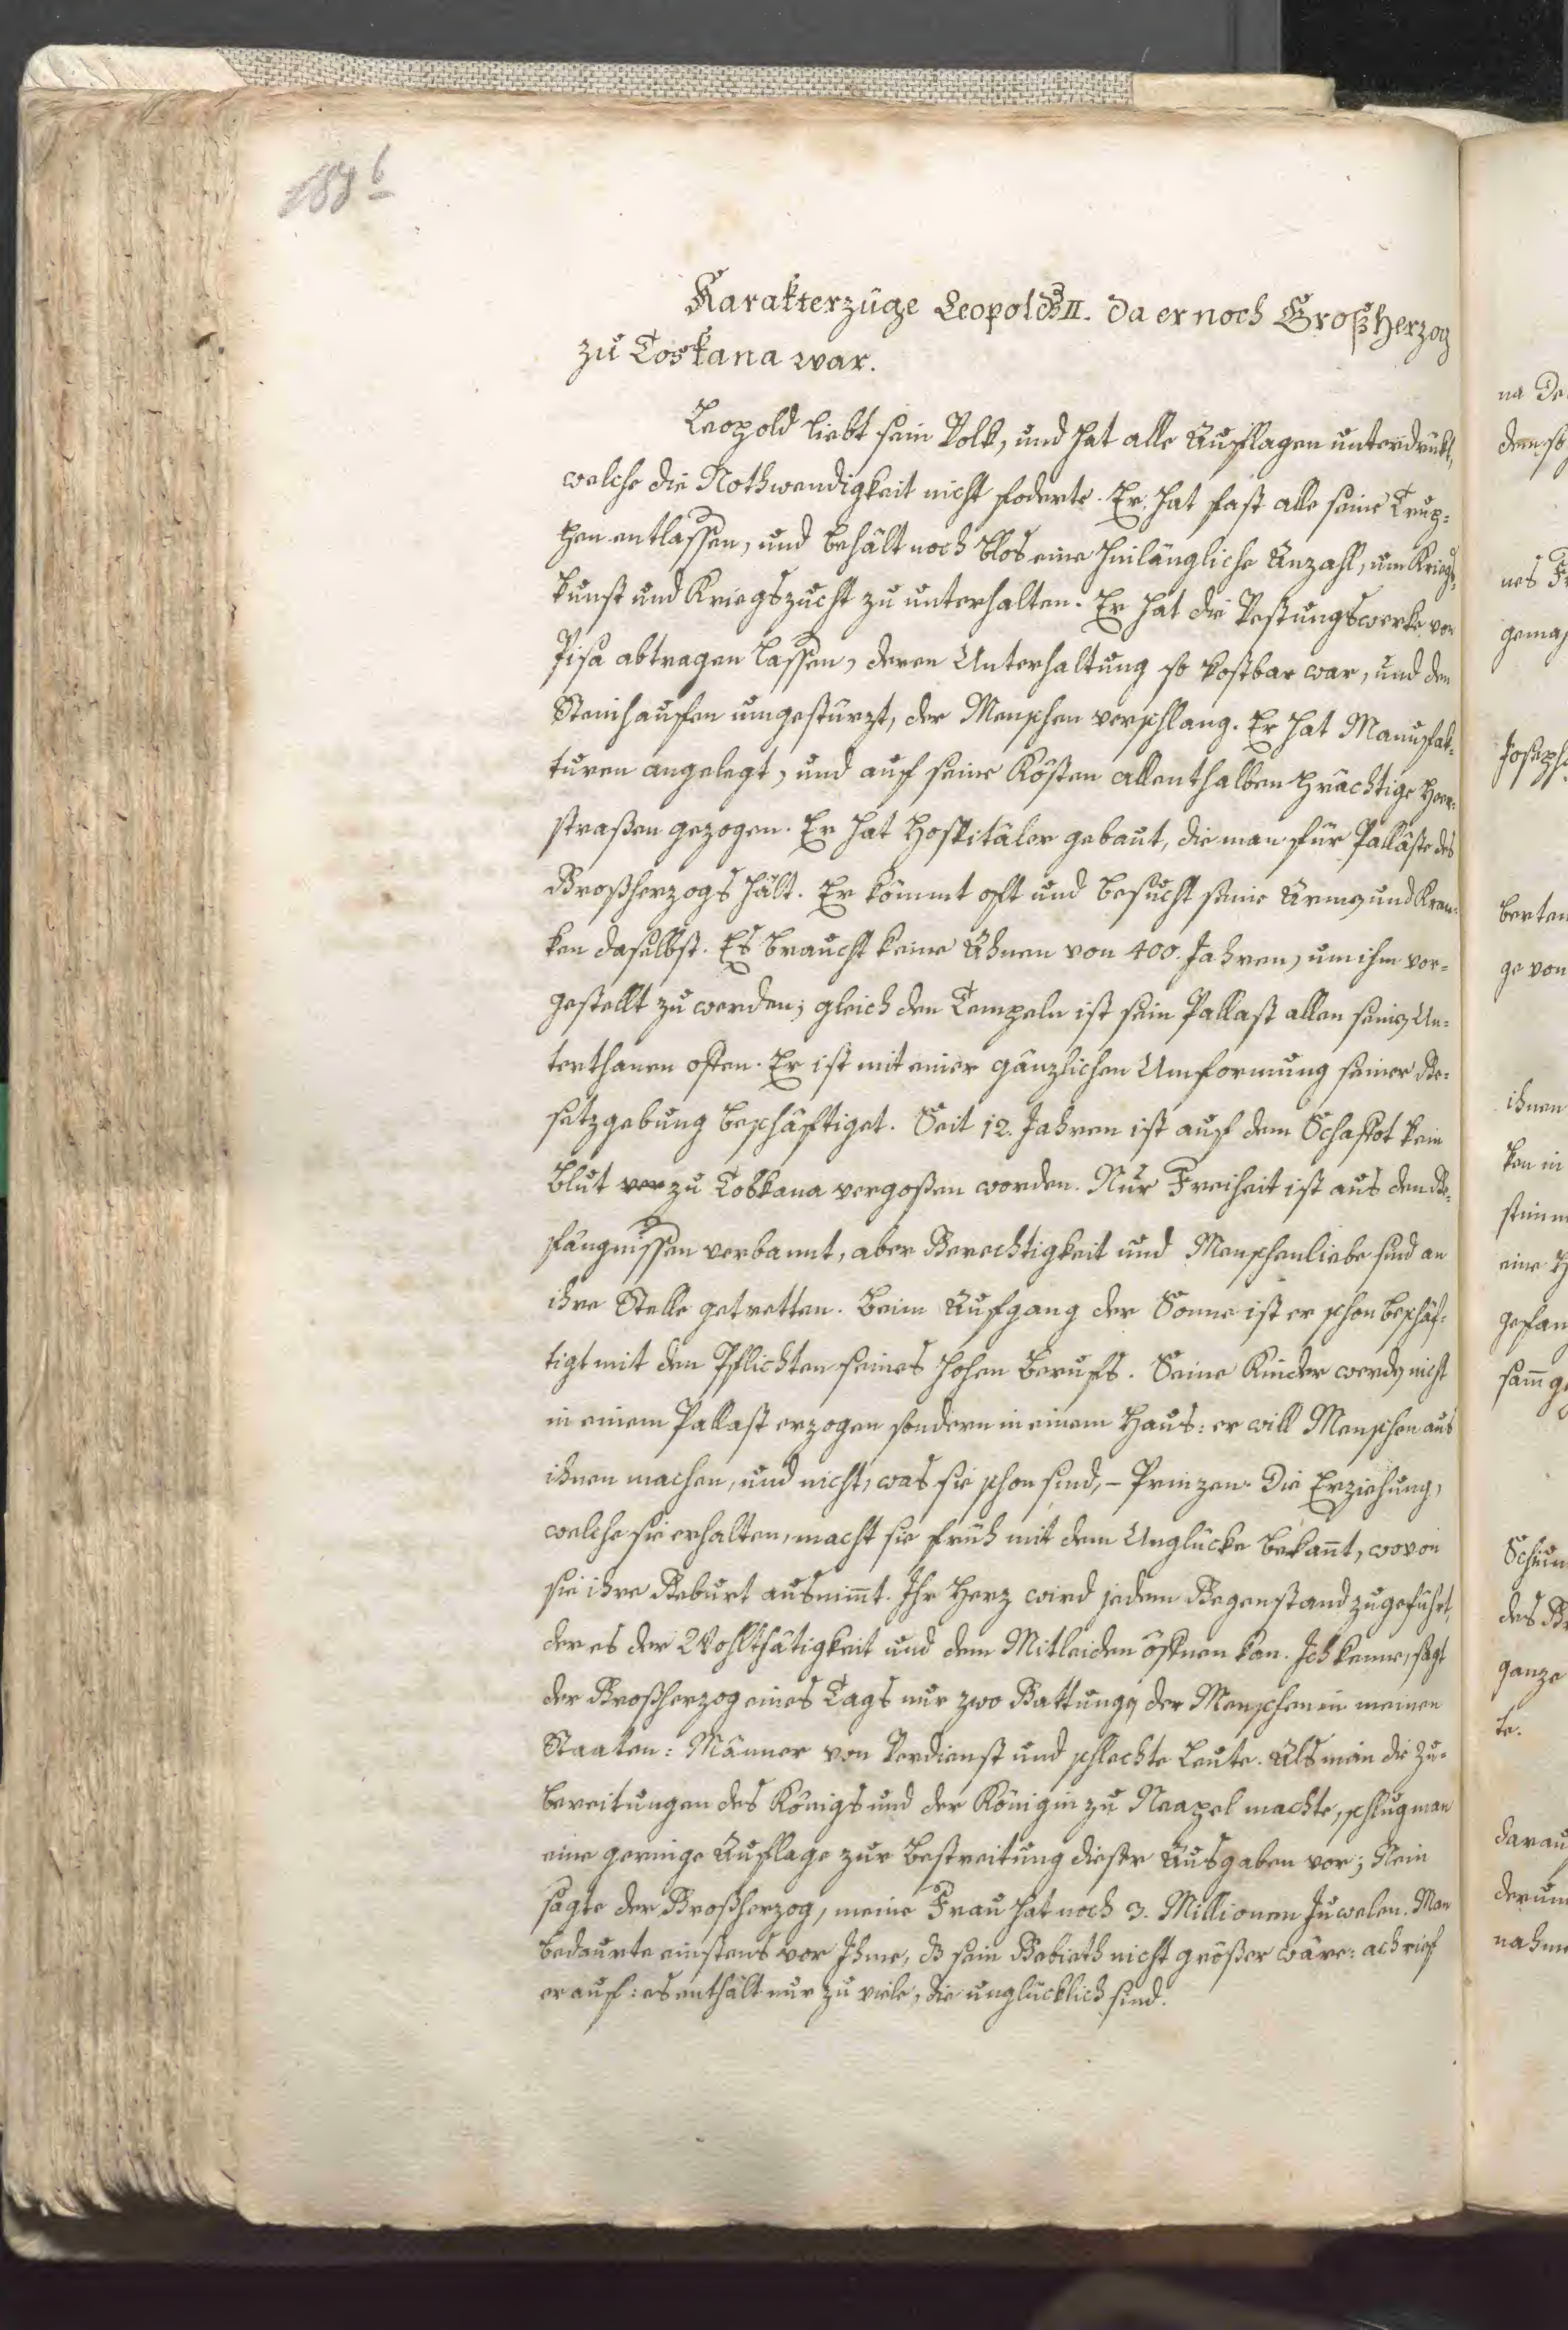 188 b
Karakterzüge Leopolds II. da er noch Großherzog
zu Toskana war.
Leopold liebt sein Volk, und hat alle Auflagen unterdrükt,
welche die Nothwendigkeit nicht foderte. Er hat fast alle seine Trup=
pen entlassen, und behält noch blos eine hinlängliche Anzahl, um Kriegs=
kunst und Kriegszucht zu unterhalten. Er hat die Vestungswerke von
Pisa abtragen lassen, deren Unterhaltung so kostbar war, und den
Steinhauffen umgestürzt, der Menschen verschlang. Er hat Manufak=
turen angelegt, und auf seine Kösten allenthalben prächtige Heer=
straßen gezogen. Er hat Hospitäler gebaut, die man für Palläste des
Großherzogs hält. Er kömmt oft und besucht seine Armen und Kran=
ken daselbst. Es braucht keine Ahnen von 400. Jahren, um ihm vor=
gestellt zu werden; gleich den Tempeln ist sein Pallast allen seinen Un=
terthanen offen. Er ist mit einer gänzlichen Umformung seiner Ge=
setzgebung beschäftiget. Seit 12. Jahren ist auf dem Schaffot kein
Blut ver zu Toskana vergoßen worden. Nur Freiheit ist aus den Ge=
fängnissen verbannt, aber Gerechtigkeit und Menschenliebe sind an
ihre Stelle getretten. Beim Aufgang der Sonne ist er schon beschäf=
tigt mit den Pflichten seines hohen Berufs. Seine Kinder werden nicht
in einem Pallast erzogen sondern in einem Haus: er will Menschen aus
ihnen machen, und nicht, was sie schon sind, – Prinzen. Die Erziehung,
welche sie erhalten, macht sie früh mit dem Unglücke bekañt, wovon
sie ihre Geburt ausnim̄t. Ihr Herz wird jedem Gegenstand zugeführt,
der es der Wohlthätigkeit und dem Mitleiden öffnen kan. Ich kenne, sagt
der Großherzog eines Tags nur zwo Gattungen der Menschen in meinen
Staaten: Männer von Verdienst und schlechte Leute. Als man die Zu=
bereitungen des Königs und der Königin zu Neapel machte, schlug man
eine geringe Auflage zur Bestreitung dieser Ausgaben vor; Nein
sagte der Großherzog, meine Frau hat noch 3. Millionen Juwelen. Man
bedaurte einstens vor Ihme, dß sein Gebieth nicht größer wäre: ach rief
er auf: es enthält nur zu viele, die unglücklich sind.